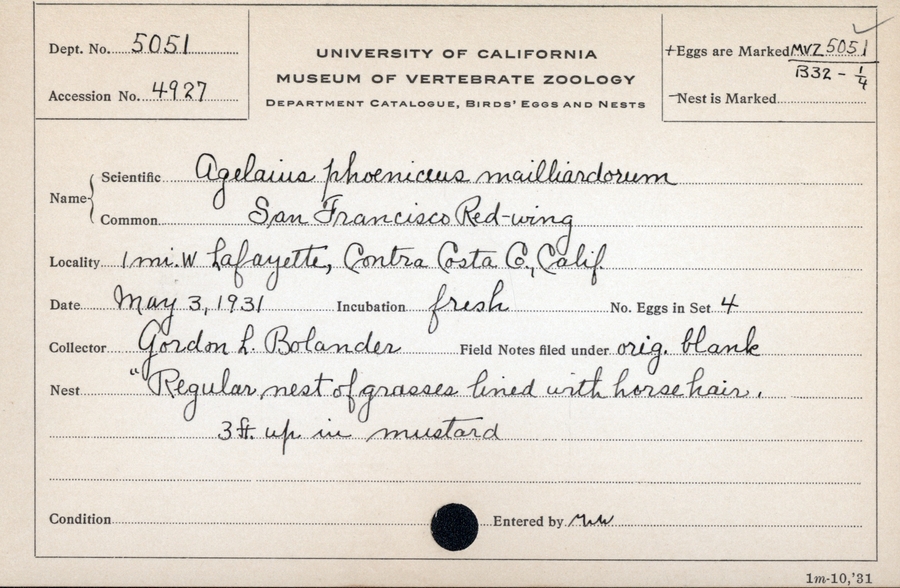 Dept. No. 5051
Accession No. 4927
UNIVERSITY OF CALIFORNIA
MUSEUM OF VERTEBRATE ZOOLOGY
DEPARTMENT CATALOGUE, BIRDS' EGGS AND NESTS
+Eggs are Marked MVZ 5051
B32 - 1/4
-Nest is Marked
Name
Scientific Agelaius phoeniceus mailliardorum
Common San Francisco Red-wing
Locality 1 mi. W Lafayette, Contra Costa Co., Calif.
Date May 3, 1931 Incubation fresh No. Eggs in Set 4
Collector Gordon L. Bolander Field Notes filed under orig. blank
Nest "Regular nest of grasses lined with horse hair.
3 ft. up in mustard
Condition Entered by
1m-10,'31